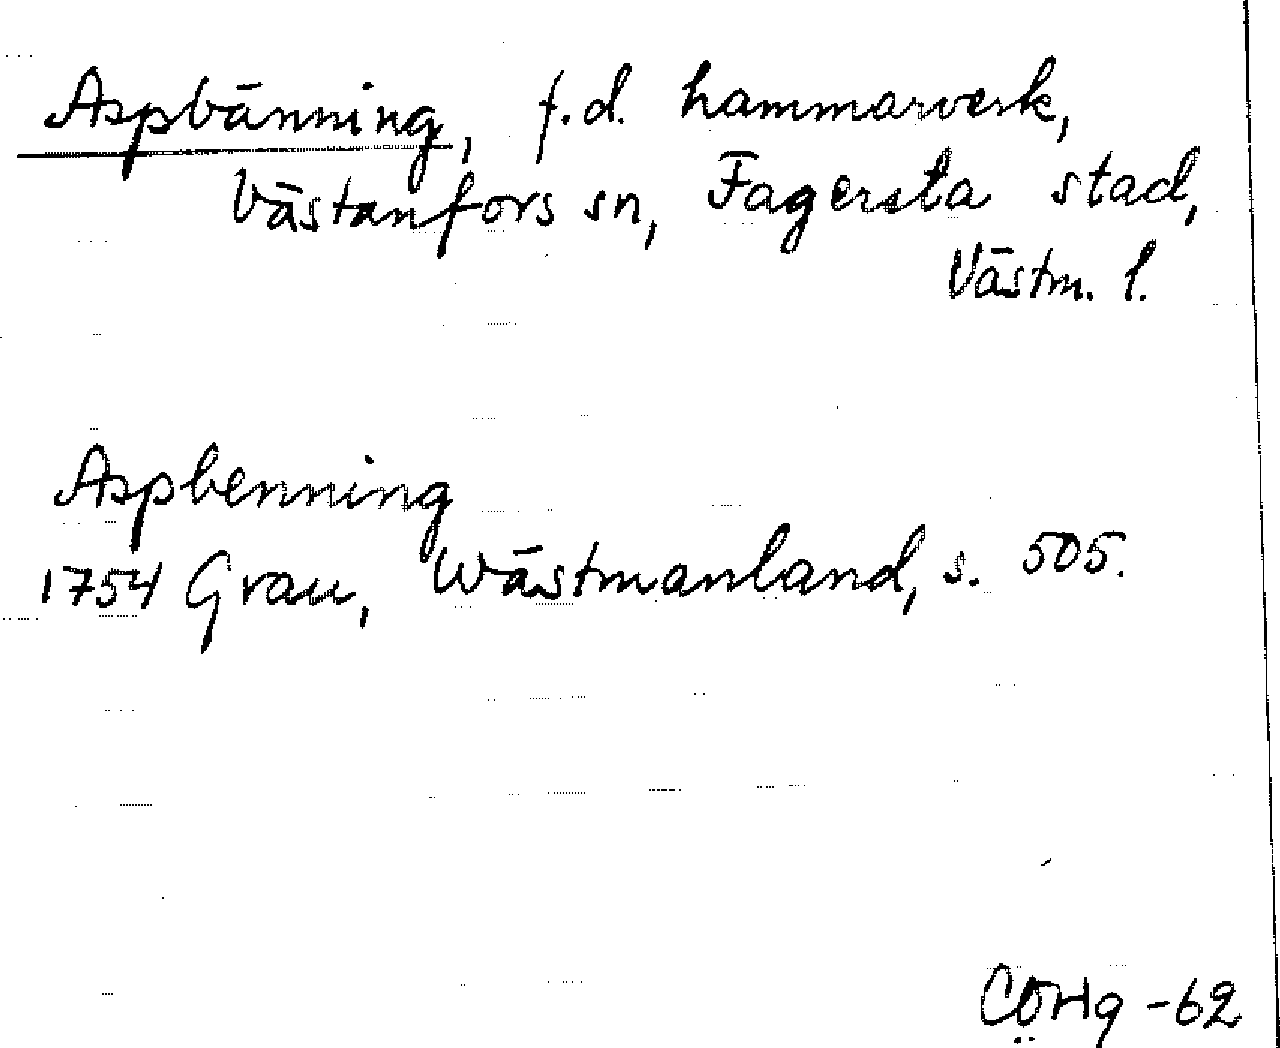 Aspbänning, f.d. hammarverk,
Västanfors sn, Fagersta stad,
Västm. l.
Aspbenning
1754 Grau, Wästmanland, s. 505.
-62